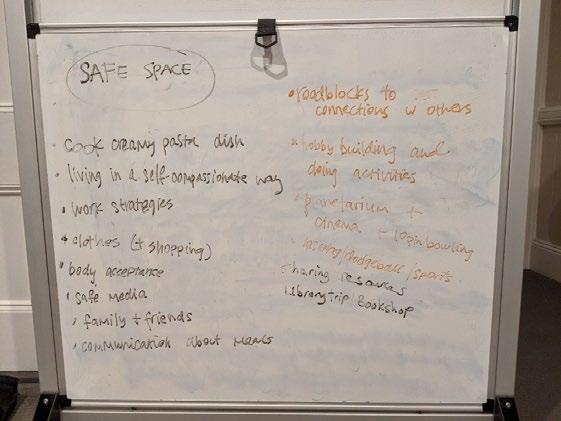 SAFE SPACE
cook creamy pasta dish
• living in a self-compassionate way
• work strategies
• clothes (+ shopping)
• body acceptance
• safe media
• family + friends
• communication about meals
• roadblocks to
connections w others
• hobby building and
doing activities
• planetarium +
cinema + bowling
/dodgeball/sports
sharing resources
library trip/Bookshop